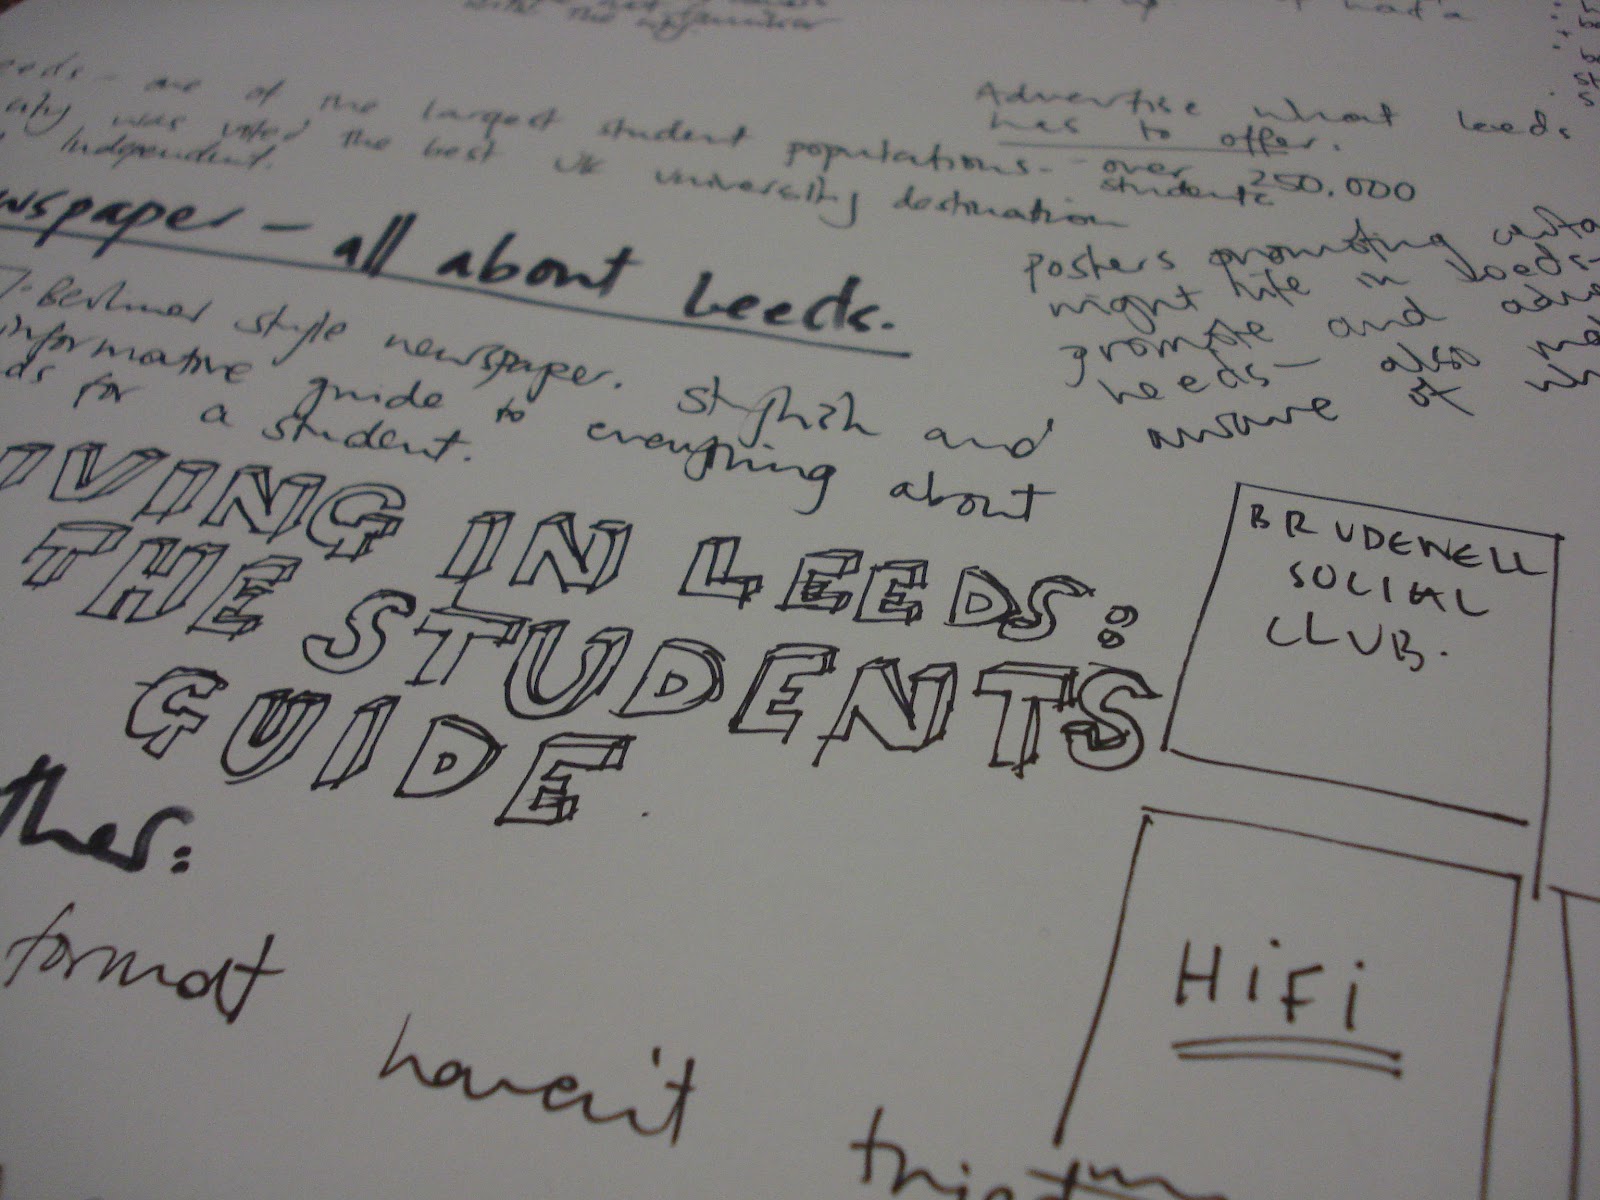 with the
had a
eeds - one of the largest student populations - over 250.000 students
city was voted the best UK university destination
Independent.
Advertise what Leeds
has to offer.
wspaper - all about Leeds.
Berliner style newspaper. Stylish and
informative guide to everything about
ds for a student.
posters promoting
night life in Leeds-
promote and
Leeds - also
aware of
IVING IN LEEDS:
THE STUDENTS
GUIDE.
BRUDENELL
SOCIAL
CLUB.
HiFi
ther:
format haven't